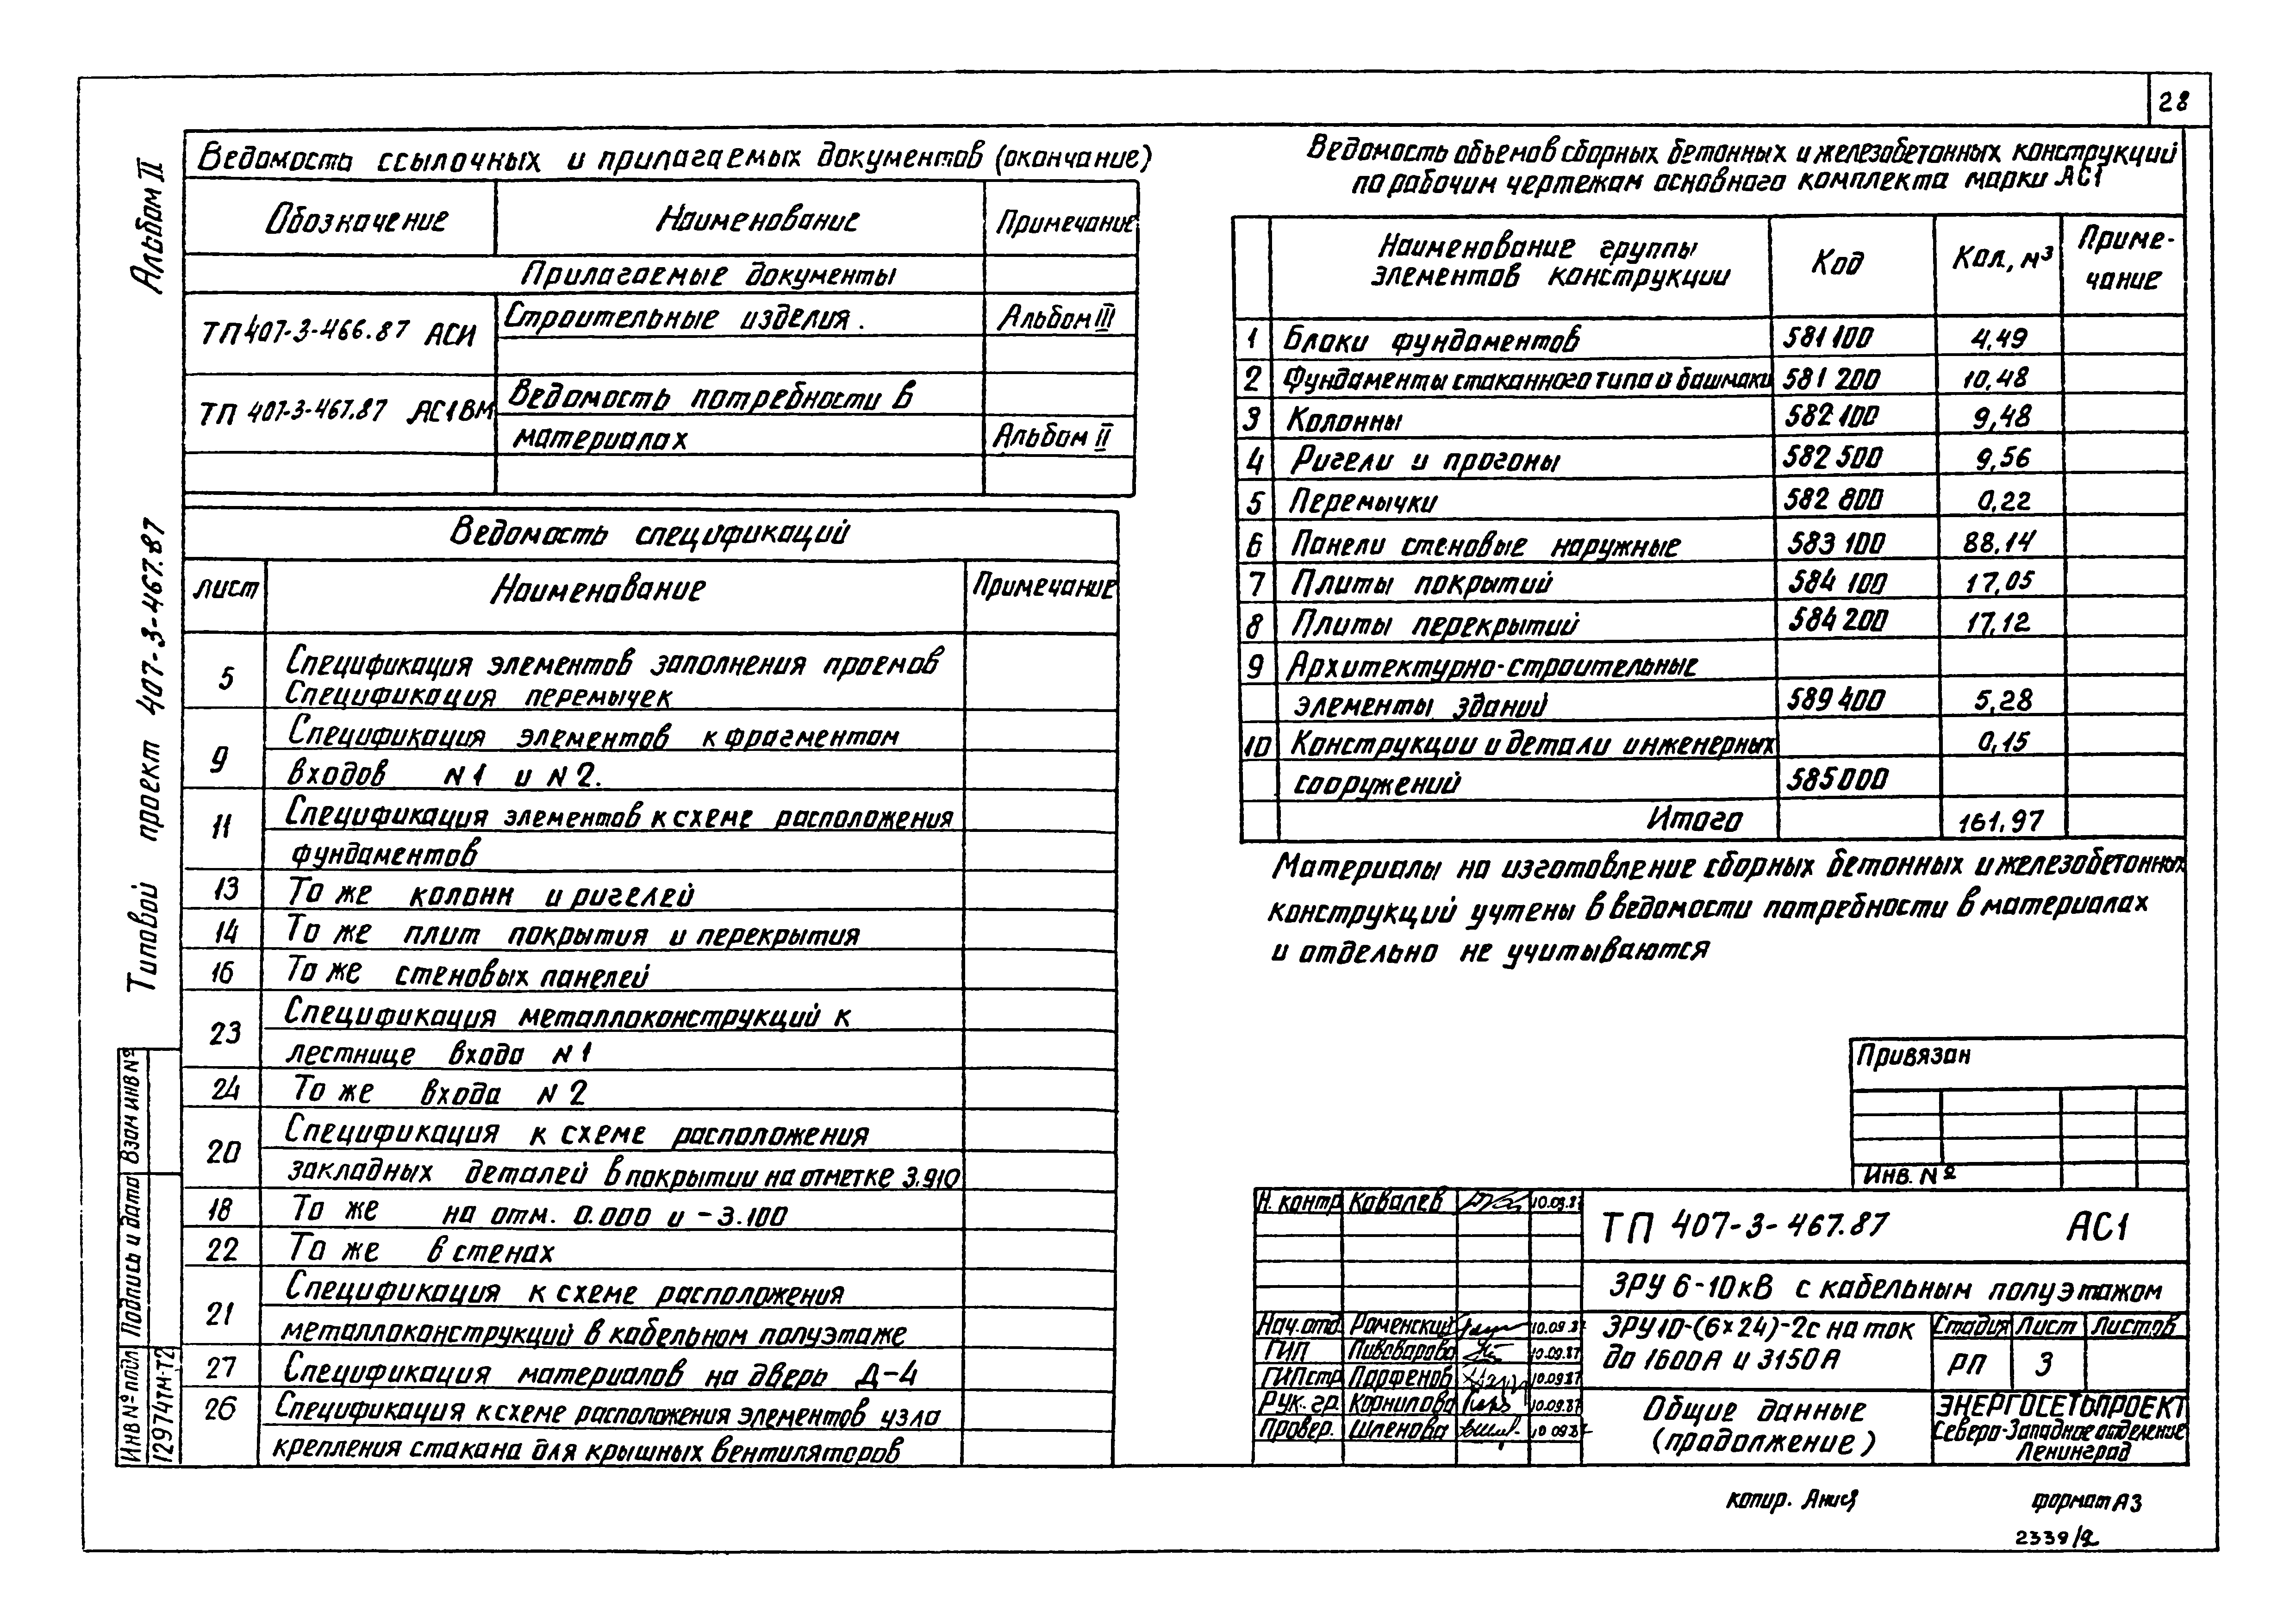 28
Альбом II
Типовой проект 407-3-467.87
Ведомость ссылочных и прилагаемых документов (окончание)
Обозначение Наименование Примечание
Прилагаемые документы
ТП 407-3-466.87 АСИ Строительные изделия. Альбом III
ТП 407-3-467.87 АС1ВМ Ведомость потребности в
материалах Альбом II
Ведомость спецификаций
лист Наименование Примечание
5 Спецификация элементов заполнения проемов
Спецификация перемычек
9 Спецификация элементов к фрагментам
входов N1 и N2.
11 Спецификация элементов к схеме расположения
фундаментов
13 То же колонн и ригелей
14 То же плит покрытия и перекрытия
16 То же стеновых панелей
23 Спецификация металлоконструкций к
лестнице входа N1
24 То же входа N2
20 Спецификация к схеме расположения
закладных деталей в покрытии на отметке 3.910
18 То же на отм. 0.000 и -3.100
22 То же в стенах
21 Спецификация к схеме расположения
металлоконструкций в кабельном полуэтаже
27 Спецификация материалов на дверь Д-4
26 Спецификация к схеме расположения элементов узла
крепления стакана для крышных вентиляторов
Взам инв №
Подпись и дата
Инв № подл
12974тм-т2
Ведомость объемов сборных бетонных и железобетонных конструкций
по рабочим чертежам основного комплекта марки АС1
Наименование группы
элементов конструкции
Код Кол., м³ Приме-
чание
1 Блоки фундаментов 581 100 4,49
2 Фундаменты стаканного типа и башмаки 581 200 10,48
3 Колонны 582 100 9,48
4 Ригели и прогоны 582 500 9,56
5 Перемычки 582 800 0,22
6 Панели стеновые наружные 583 100 88,14
7 Плиты покрытий 584 100 17,05
8 Плиты перекрытий 584 200 17,12
9 Архитектурно-строительные
элементы зданий 589 400 5,28
10 Конструкции и детали инженерных 0,15
сооружений 585000
Итого 161,97
Материалы на изготовление сборных бетонных и железобетонных
конструкций учтены в ведомости потребности в материалах
и отдельно не учитываются
Привязан
Инв. №
Н. контр Ковалев 10.09.87
Нач. отд. Роменский 10.09.87
ГИП Пивоварова 10.09.87
ГИПстр Парфенов 10.09.87
Рук. гр. Корнилова 10.09.87
Провер. Шленова 10 09.87
ТП 407-3-467.87 АС1
ЗРУ 6-10кВ с кабельным полуэтажом
ЗРУ10-(6×24)-2с на ток
до 1600А и 3150А
Стадия Лист Листов
РП 3
Общие данные
(продолжение)
ЭНЕРГОСЕТЬПРОЕКТ
Северо-Западное отделение
Ленинград
копир. Анися
формат А3
2339/2